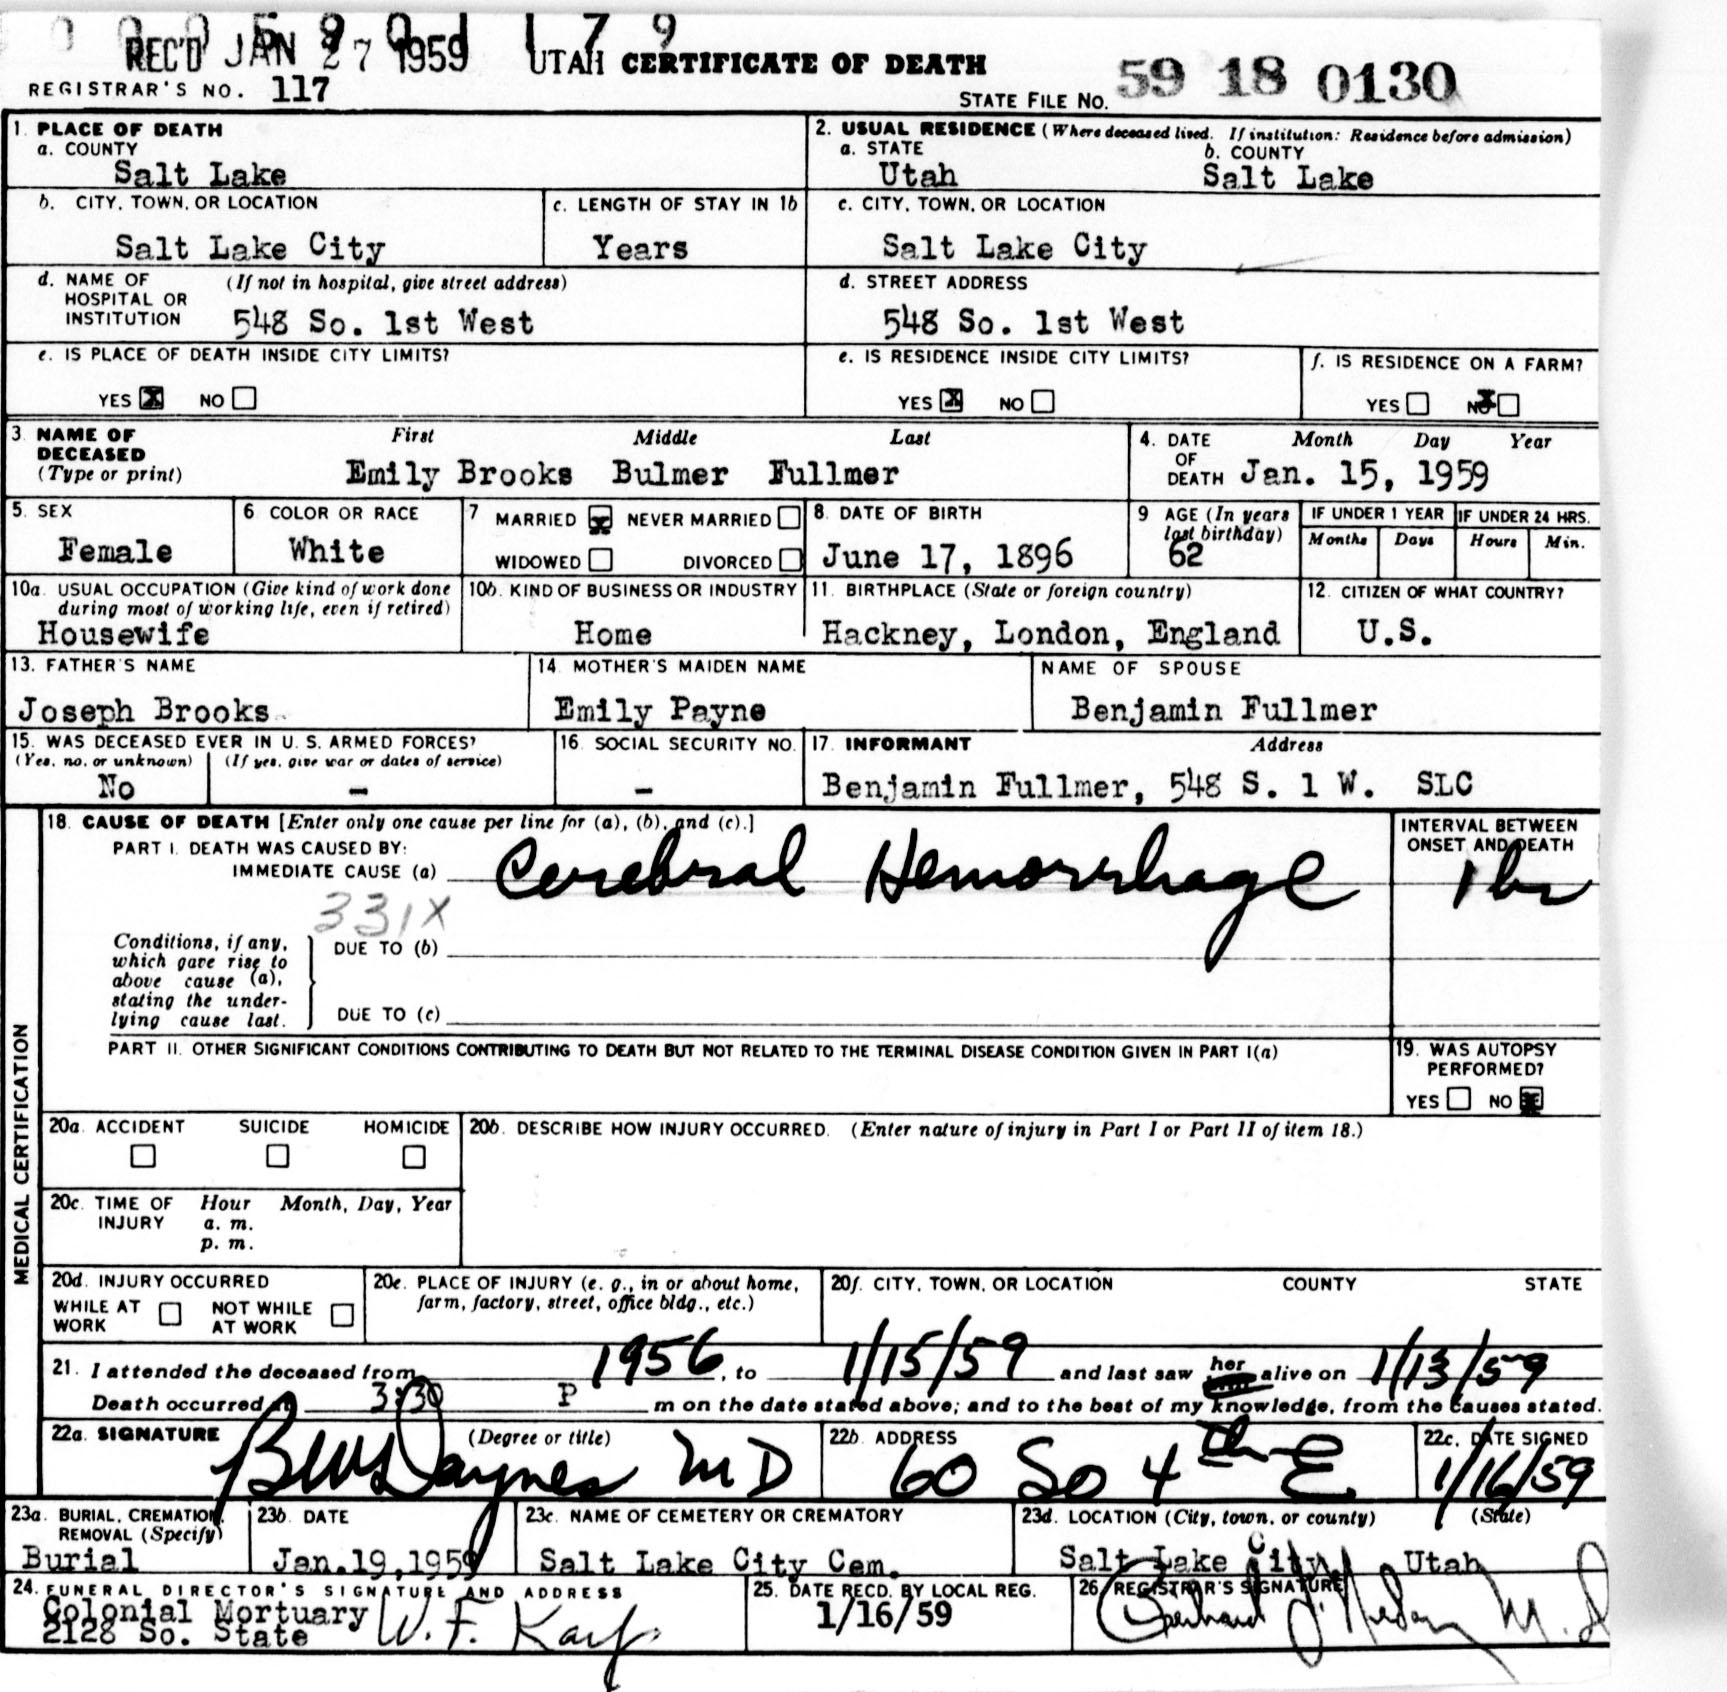 REC'D JAN 27 1959 UTAH CERTIFICATE OF DEATH
REGISTRAR'S NO. 117
STATE FILE No. 59 18 0130
1. PLACE OF DEATH
a. COUNTY
Salt Lake
2. USUAL RESIDENCE (Where deceased lived. If institution: Residence before admission)
a. STATE b. COUNTY
Utah Salt Lake
b. CITY, TOWN, OR LOCATION
Salt Lake City
c. LENGTH OF STAY IN 1b
Years
c. CITY, TOWN, OR LOCATION
Salt Lake City
d. NAME OF HOSPITAL OR INSTITUTION (If not in hospital, give street address)
548 So. 1st West
d. STREET ADDRESS
548 So. 1st West
e. IS PLACE OF DEATH INSIDE CITY LIMITS?
YES X NO
e. IS RESIDENCE INSIDE CITY LIMITS?
YES X NO
f. IS RESIDENCE ON A FARM?
YES NO X
3. NAME OF DECEASED (Type or print)
First Middle Last
Emily Brooks Bulmer Fullmer
4. DATE OF DEATH Month Day Year
Jan. 15, 1959
5. SEX
Female
6. COLOR OR RACE
White
7. MARRIED X NEVER MARRIED
WIDOWED DIVORCED
8. DATE OF BIRTH
June 17, 1896
9. AGE (In years last birthday)
62
IF UNDER 1 YEAR
Months Days
IF UNDER 24 HRS.
Hours Min.
10a. USUAL OCCUPATION (Give kind of work done during most of working life, even if retired)
Housewife
10b. KIND OF BUSINESS OR INDUSTRY
Home
11. BIRTHPLACE (State or foreign country)
Hackney, London, England
12. CITIZEN OF WHAT COUNTRY?
U.S.
13. FATHER'S NAME
Joseph Brooks
14. MOTHER'S MAIDEN NAME
Emily Payne
NAME OF SPOUSE
Benjamin Fullmer
15. WAS DECEASED EVER IN U.S. ARMED FORCES?
(Yes, no, or unknown) (If yes, give war or dates of service)
No –
16. SOCIAL SECURITY NO.
–
17. INFORMANT Address
Benjamin Fullmer, 548 S. 1 W. SLC
MEDICAL CERTIFICATION
18. CAUSE OF DEATH [Enter only one cause per line for (a), (b), and (c).]
PART I. DEATH WAS CAUSED BY:
IMMEDIATE CAUSE (a) Cerebral Hemorrhage
INTERVAL BETWEEN ONSET AND DEATH
1 hr
331X
Conditions, if any, which gave rise to above cause (a), stating the underlying cause last.
DUE TO (b)
DUE TO (c)
PART II. OTHER SIGNIFICANT CONDITIONS CONTRIBUTING TO DEATH BUT NOT RELATED TO THE TERMINAL DISEASE CONDITION GIVEN IN PART I(a)
19. WAS AUTOPSY PERFORMED?
YES NO X
20a. ACCIDENT SUICIDE HOMICIDE
20b. DESCRIBE HOW INJURY OCCURRED. (Enter nature of injury in Part I or Part II of item 18.)
20c. TIME OF INJURY Hour Month, Day, Year
a. m.
p. m.
20d. INJURY OCCURRED
WHILE AT WORK NOT WHILE AT WORK
20e. PLACE OF INJURY (e. g., in or about home, farm, factory, street, office bldg., etc.)
20f. CITY, TOWN, OR LOCATION COUNTY STATE
21. I attended the deceased from 1956, to 1/15/59 and last saw her alive on 1/13/59
Death occurred at 3:30 P m on the date stated above; and to the best of my knowledge, from the causes stated.
22a. SIGNATURE (Degree or title)
BW Daynes MD
22b. ADDRESS
60 So 4th E.
22c. DATE SIGNED
1/16/59
23a. BURIAL, CREMATION, REMOVAL (Specify)
Burial
23b. DATE
Jan.19,1959
23c. NAME OF CEMETERY OR CREMATORY
Salt Lake City Cem.
23d. LOCATION (City, town, or county) (State)
Salt Lake City Utah
24. FUNERAL DIRECTOR'S SIGNATURE AND ADDRESS
Colonial Mortuary
2128 So. State
W. F. Kay
25. DATE RECD. BY LOCAL REG.
1/16/59
26. REGISTRAR'S SIGNATURE
M.D